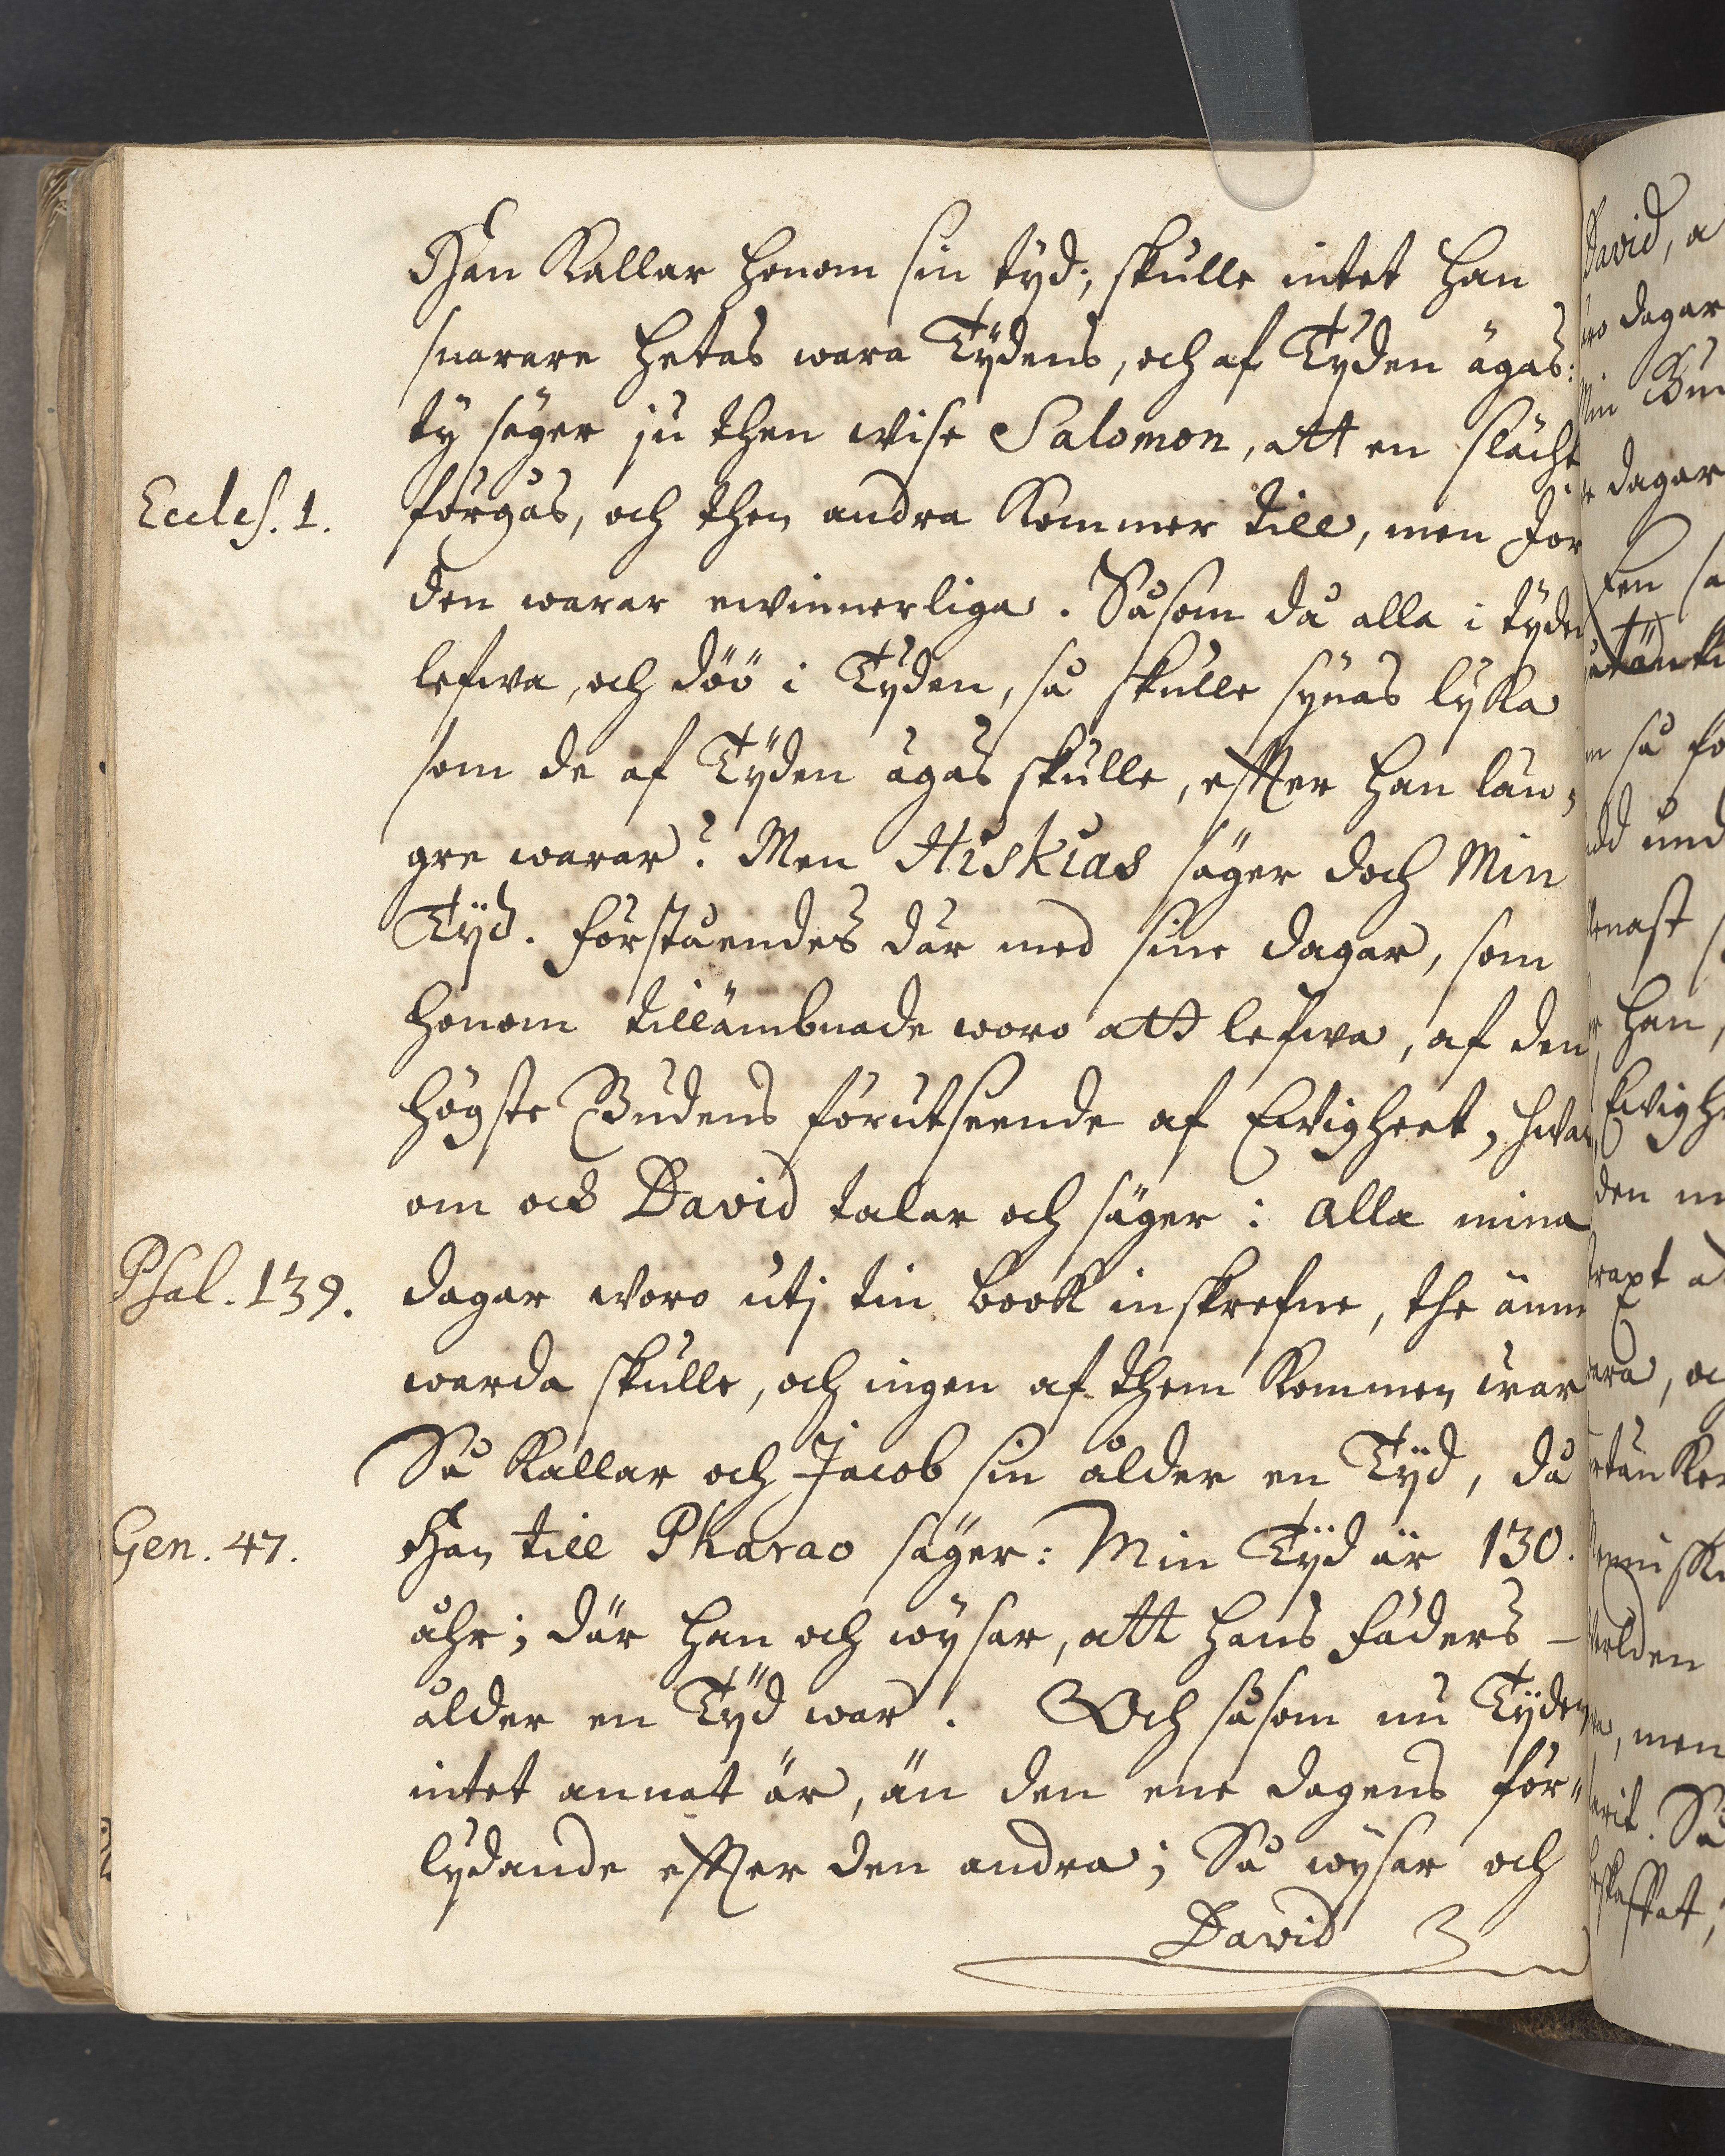 Han Kallar honom sin tyd; skulle intet han
snarare hetas wara Tÿdens, och af Tyden ägas:
ty säger ju then wise Salomon, att en slächt
Eccles. 1. förgås, och then andra Kommer till, men Jor
den warar ewinnerliga. Såsom då alla i tyden
lefwa, och döö i Tyden, så skulle synas lyka
som de af Tÿden ägas skulle, effter han län,
gre warar? Men Hiskias säger doch Min
Tÿd. förståendes där med sine dagar, som
honom tillämbnade woro att lefwa, af den
högste Gudens förutseende af Ewigheet, hwar
om ock David talar och säger: Alla mina
Psal. 139. dagar woro utj tin book inskrefne, the ännu
warda skulle, och ingen af them Kommen war
Så Kallar och Jacob sin ålder en Tÿd, då
Gen. 47. Han till Pharao säger: Min Tÿd är 130.
åhr; där han och wÿsar, att hans fäders -
ålder en Tÿd war. Och såsom nu Tyden
intet annat är, än den ene dagens för"
lydande effter den andra; Så wÿsar och
David
David, a
dagar
Min
dagar
sa
så
und
han,
Ewighe
den
men
Så